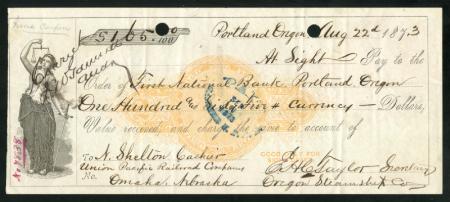 $165.00/100
Portland Oregon Aug 22d 1873
At Sight Pay to the
Order of First National Bank Portland Oregon
One Hundred & Sixty five & Currency Dollars,
Value received, and charge the same to account of
To N. Shelton Cashier
Union Pacific Railroad Company
No. Omaha Nebraska
GOOD ONLY FOR
Taylor Secretary
Oregon Steamship Co